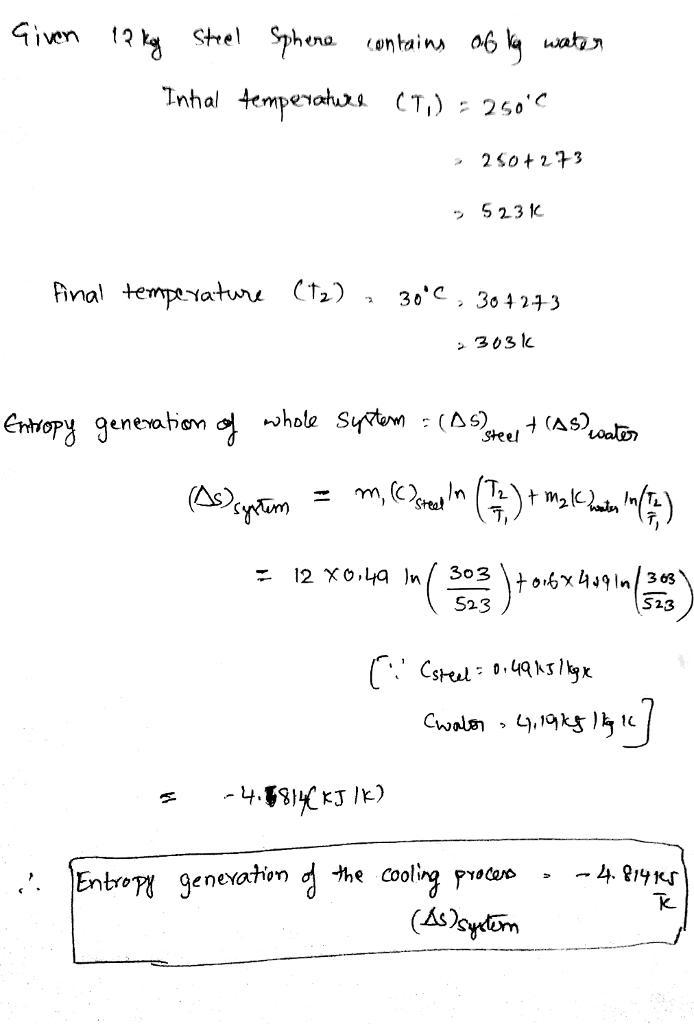 Given 12 kg Steel Sphere contains 0.6 kg water
Intial temperature (T₁) = 250°C
= 250+273
= 523K
Final temperature (T₂) = 30°C = 30+273
= 303k
Entropy generation of whole System = (ΔS)steel + (ΔS)water
(ΔS)system = m₁(C)steel ln (T₂/T₁) + m₂(C)water ln(T₂/T₁)
= 12 × 0.49 ln (303/523) + 0.6×4.19 ln (303/523)
[∵ Csteel = 0.49 kJ/kgk
Cwater = 4.19 kJ/kg k]
= -4.814 (KJ/K)
∴ Entropy generation of the cooling process = -4.814 KJ/K
(ΔS)system